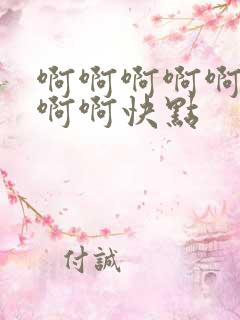 啊啊啊啊啊
啊啊快點
付誠